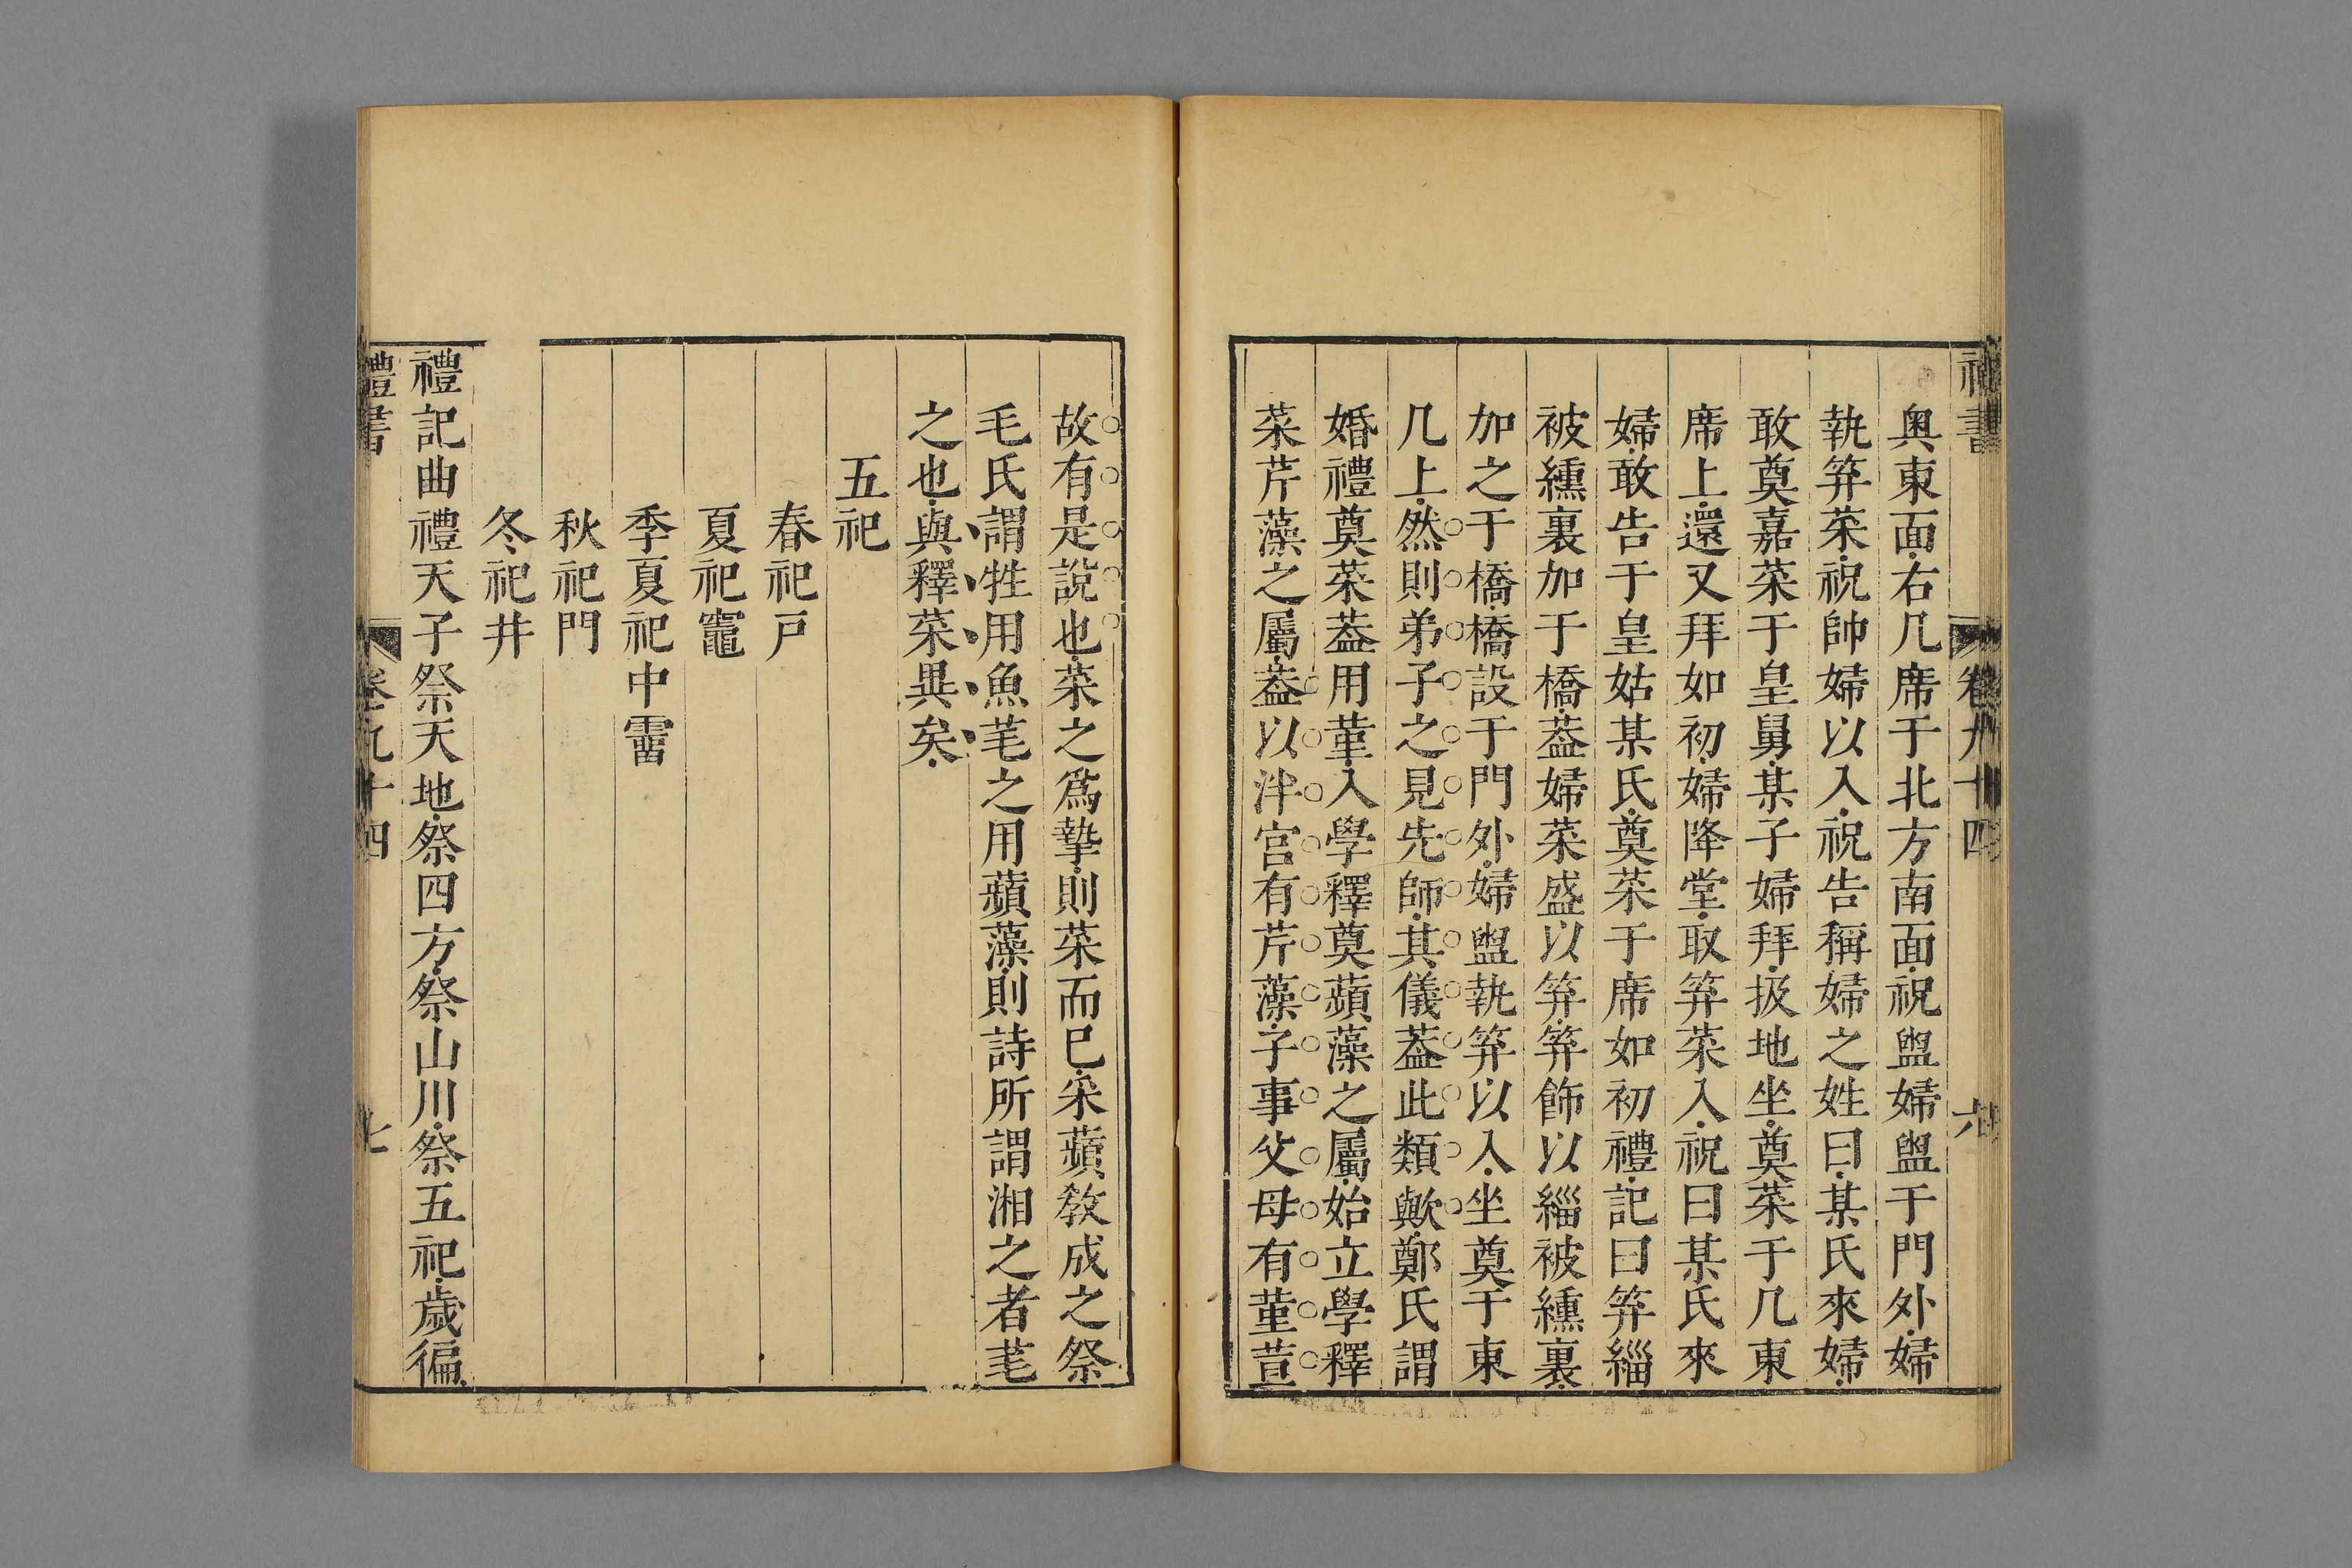 禮書 卷九十四 六
奥東面右几席于北方南面祝盥婦盥于門外婦
執笲菜祝帥婦以入祝告稱婦之姓曰某氏來婦
敢奠嘉菜于皇舅某子婦拜扱地坐奠菜于几東
席上還又拜如初婦降堂取笲菜入祝曰某氏來
婦敢告于皇姑某氏奠菜于席如初禮記曰笲緇
被纁裏加于橋葢婦菜盛以笲笲飾以緇被纁裏
加之于橋橋設于門外婦盥執笲以入坐奠于東
几上然則弟子之見先師其儀葢此類歟鄭氏謂
婚禮奠菜葢用菫入學釋奠蘋藻之屬始立學釋
菜芹藻之屬葢以泮宮有芹藻子事父母有菫荁
故有是說也菜之爲摯則菜而已采蘋敎成之祭
毛氏謂牲用魚芼之用蘋藻則詩所謂湘之者芼
之也與釋菜異矣
五祀
春祀戸
夏祀竈
季夏祀中霤
秋祀門
冬祀井
禮記曲禮天子祭天地祭四方祭山川祭五祀歲徧
禮書 卷九十四 七